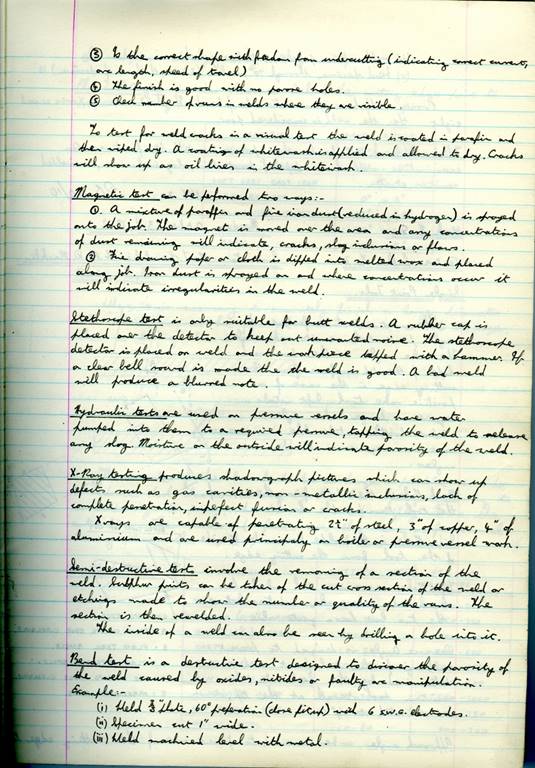 ③ Is the correct shape with freedom from undercutting (indicating correct current,
arc length, speed of travel)
④ The finish is good with no porous holes.
⑤ Check number of runs in welds where they are visible.
To test for weld cracks in a visual test the weld is coated in parafin and
then wiped dry. A coating of whitewash is applied and allowed to dry. Cracks
will show up as oil lines in the whitewash.
Magnetic test can be performed two ways:-
①. A mixture of paraffin and fine iron dust (reduced in hydrogen) is sprayed
onto the job. The magnet is moved over the area and any concentrations
of dust remaining will indicate, cracks, slag inclusions or flaws.
② Fine drawing paper or cloth is dipped into melted wax and placed
along job. Iron dust is sprayed on and where concentrations occur it
will indicate irregularities in the weld.
Stethoscope test is only suitable for butt welds. A rubber cap is
placed over the detector to keep out unwanted noise. The stethoscope
detector is placed on weld and the work piece tapped with a hammer. If
a clear bell sound is made the the weld is good. A bad weld
will produce a blurred note.
Hydraulic tests are used on pressure vessels and have water
pumped into them to a required pressure, tapping the weld to release
any slag. Moisture on the outside will indicate porosity of the weld.
X-Ray testing produces shadowgraph pictures which can show up
defects such as gas cavities, non-metallic inclusions, lack of
complete penetration, imperfect fusion or cracks.
X rays are capable of penetrating 2½" of steel, 3" of copper, 4" of
aluminium and are used principaly in boiler or pressure vessel work.
Semi-destructive tests involve the removing of a section of the
weld. Sulphur prints can be taken of the cut cross section of the weld or
etchings made to show the number or quality of the runs. The
section is then rewelded.
The inside of a weld can also be seen by drilling a hole into it.
Bend test is a destructive test designed to discover the porosity of
the weld caused by oxides, nitrides or faulty arc manipulation.
Example:-
(i) Weld plate, 60° preparation (close fit up) with 6 s.w.g. electrodes.
(ii) Specimen cut 1" wide.
(iii) Weld machined level with metal.